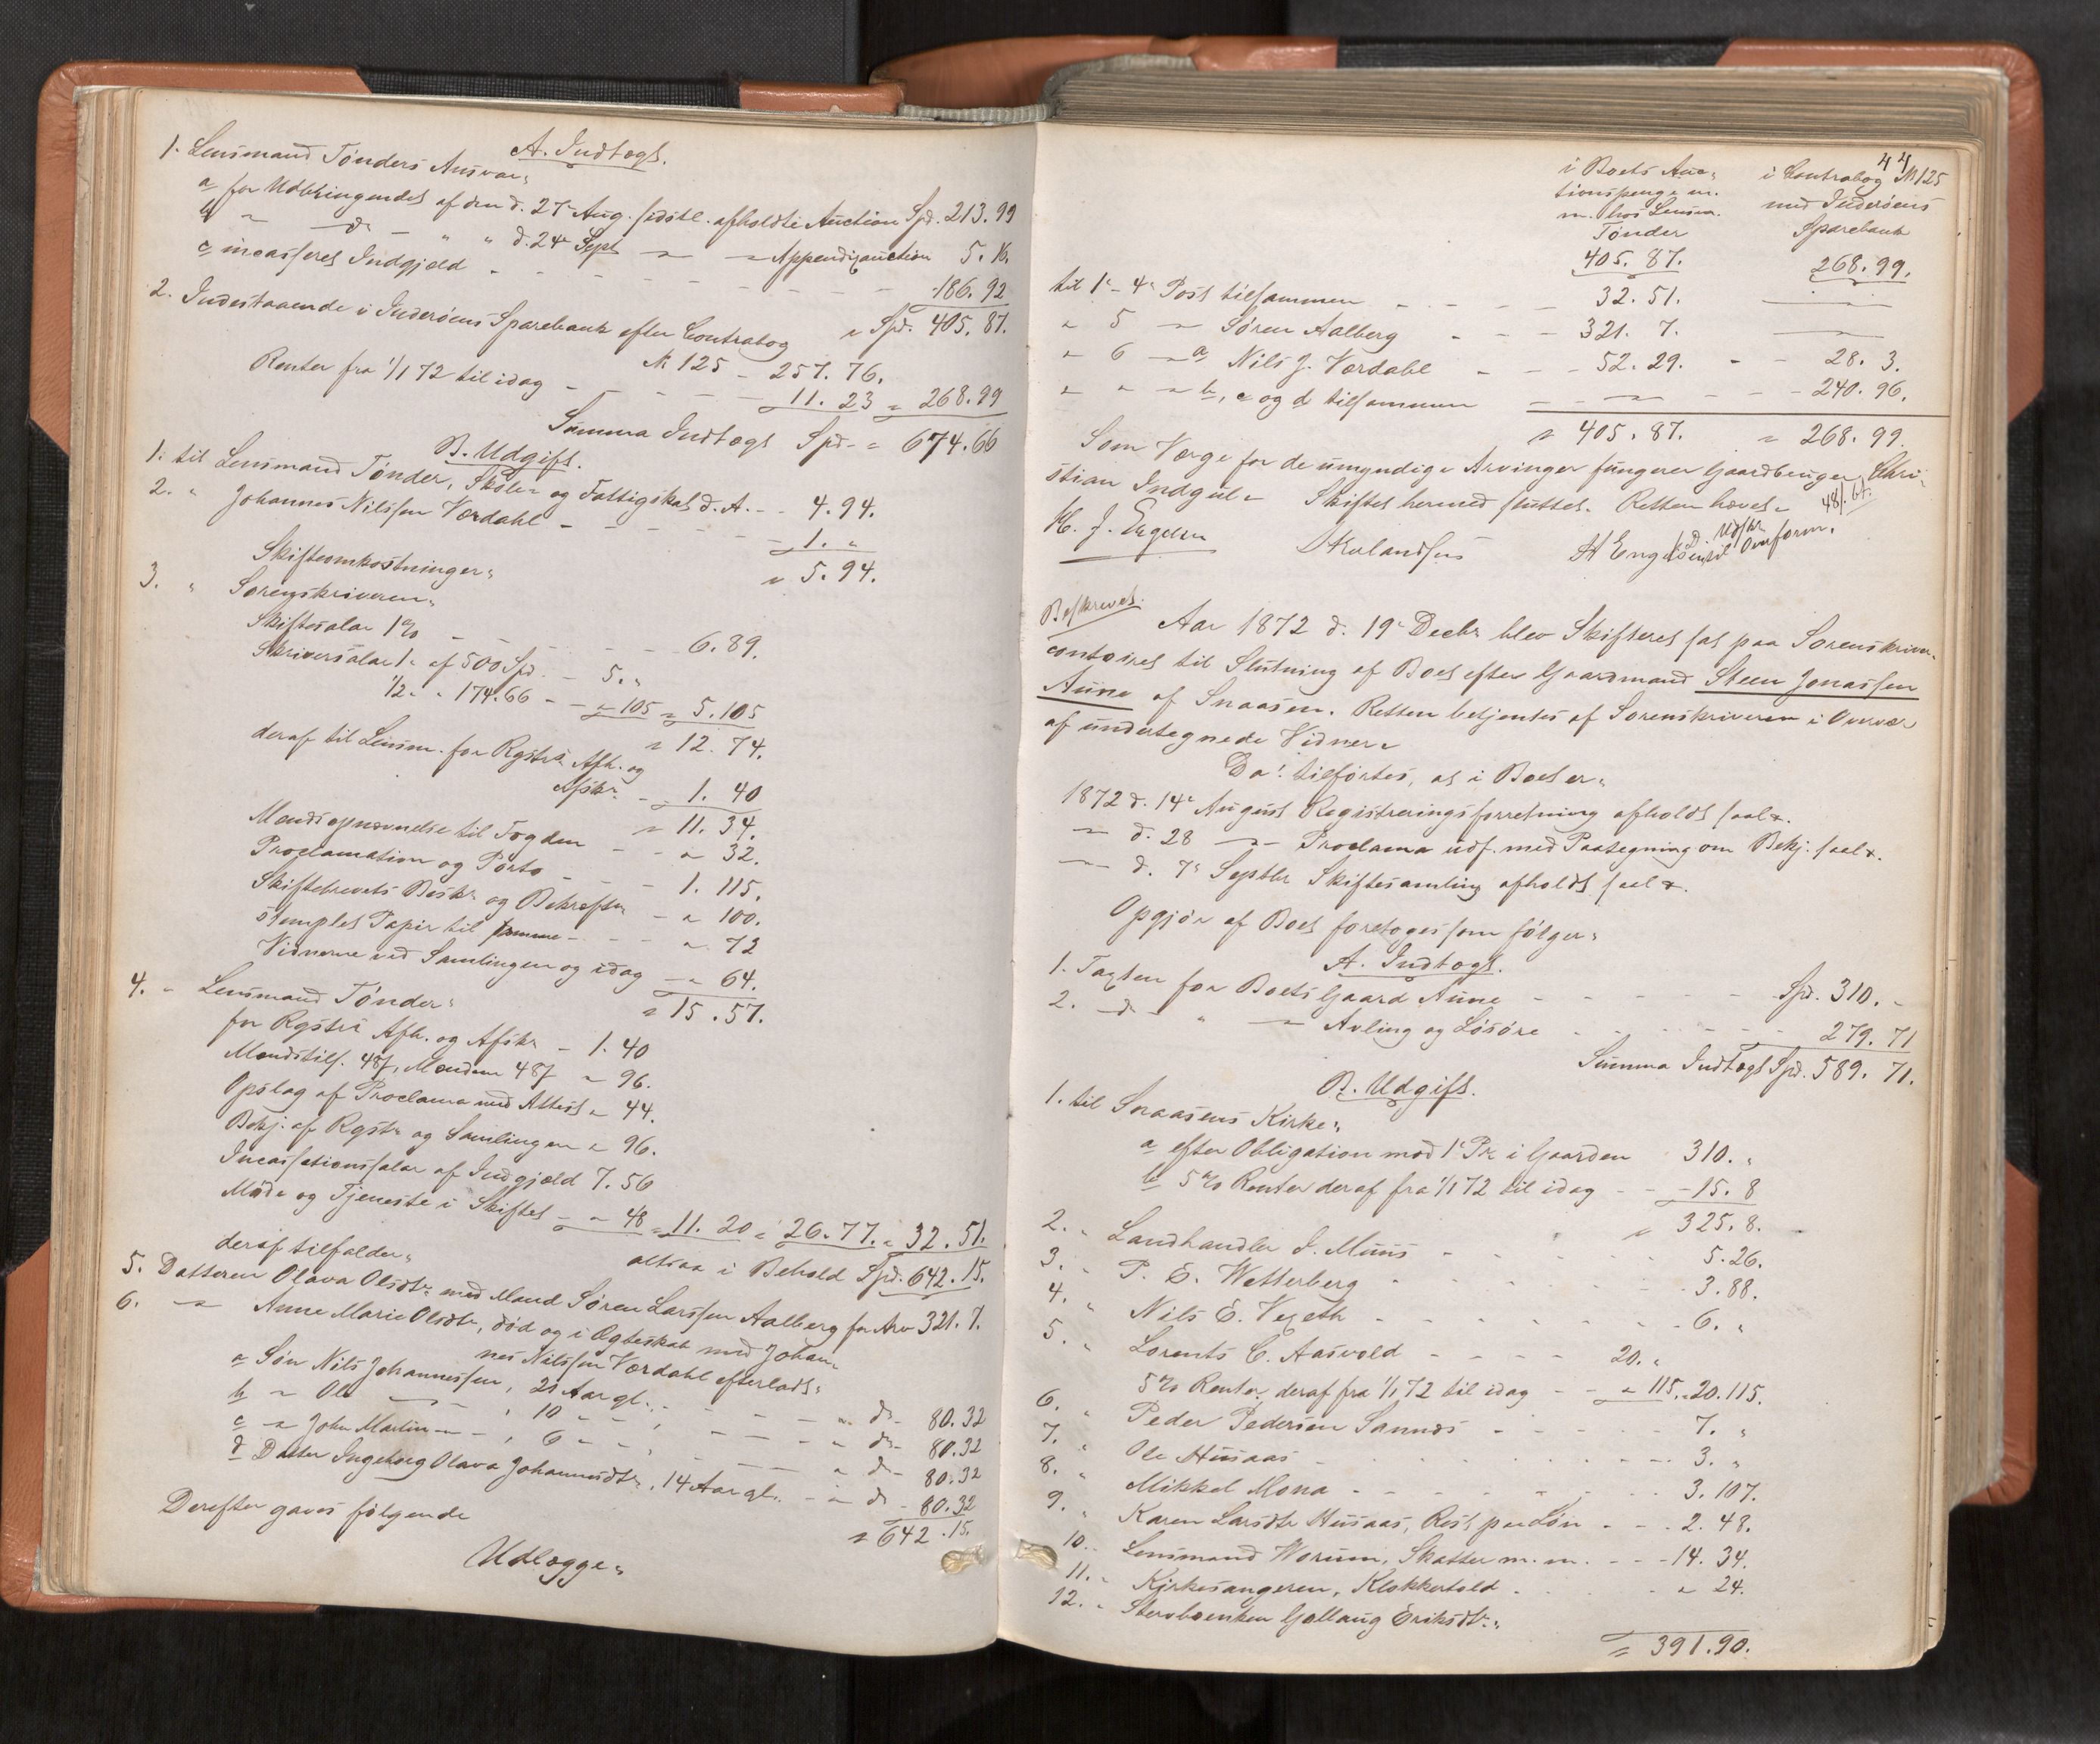 A. Indtægt.
1. Lensmand Tønders Ansvar:
a for Udbringendet af den d. 27 Aug. sidstl. afholdte Auction Spd. 213.99
b " d " " d. 24 Sept " " Appendixauction 5.16.
c incasseret Indgjæld - - - - - - - 186.92
" Spd. 405.87.
2. Indestaaende i Inderøens Sparebank efter Contrabog
№ 125 - 257.76.
Renter fra 1/1 72 til idag - - - - - 11.23 = 268.99
Summa Indtægt Spd. = 674.66
B. Udgift.
1. til Lensmand Tønder, Skole- og Fattigskat d. A. - - 4.94.
2. " Johannes Nilssen Værdahl - - - - - 1. "
" 5.94.
Skifteomkostninger:
3. " Sorenskriveren:
Skiftesalar 1% - - - - - 6.89.
Skriversalar 1% af 500 Spd. - 5. "
1/2 " " 174.66 - - " 105 = 5.105
" 12.74.
deraf til Lensm. for Rgstrs Afh. og
Afskr. - 1.40
" 11.34.
Mændsopnævnelse til Fogden - - " 32.
Proclamation og Porto - - - 1.115.
Skiftebrevets Beskr. og Bekræftn - " 100.
Stemplet Papir til samme - - - " 72
Vidnerne ved Samlingen og idag - " 64.
" 15.57.
4. " Lensmand Tønder:
for Rgstrs Afh. og Afskr. - 1.40
Mændstils. 48ß, Mændene 48ß " 96.
Opslag af Proclama med Attest " 44.
Bekj. af Rgstr. og Samlingen " 96.
Incassationssalar af Indgjæld 7.56
Møde og Tjeneste i Skiftet - " 48 = 11.20 = 26.77. = 32.51.
altsaa i Behold Spd. 642.15.
deraf tilfalder:
5. Datteren Olava Olsdtr. med Mand Søren Larssen Aalberg for Arv 321.7.
6. " Anne Marie Olsdtr., død og i Ægteskab med Johan-
nes Nilssen Værdahl efterladt:
a Søn Nils Johannessen, 21 Aar gl. - - - " d - 80.32
b " Ole - " , 10 - - , - - - " d - 80.32
c " John Martin - " - , 6 - - , - - - " d - 80.32
d Datter Ingeborg Olava Johannesdtr., 14 Aar gl. - " d - 80.32
" 642.15.
Derefter gaves følgende
Udlægge:
44
i Boets Auc-
tionspenge m.
m. hos Lensm.
Tønder
405.87.
i Contrabog № 125
med Inderøens
Sparebank
268.99.
til 1- 4 Post tilsammen - - - - 32.51.
" 5 " Søren Aalberg - - - 321.7.
" 6 " a Nils J. Værdahl - - - 52.29. - - 28.3.
" " " b, c og d tilsammen - - - - - 240.96.
" 405.87. = 268.99.
Som Værge for de umyndige Arvinger fungerer Gaardbruger Chri-
stian Indgul. Skiftet hermed sluttet. Retten hævet. 48ß. bt.
H. J. Engelsen H Engelsen
Beskrevet.
Aar 1872 d. 19 Decbr. blev Skifteret sat paa Sorenskriver-
contoiret til Slutning af Boet efter Gaardmand Steen Jonassen
Aune af Snaasen. Retten betjentes af Sorenskriveren i Overvær
af undertegnede Vidner.
Da! tilførtes, at i Boet er:
1872 d. 14 August Registreringsforretning afholdt saal.
" d. 28 " Proclama udf. med Paategning om Bekj. saal.
" d. 7 Septbr Skiftesamling afholdt saal.
Opgjør af Boet foretoges som følger:
A. Indtægt.
1. Taxten for Boets Gaard Aune - - - - - - Spd. 310. "
2. d " " Avling og Løsøre - - - - - 279.71
Summa Indtægt Spd. 589.71.
B. Udgift.
1. til Snaasens Kirke:
a efter Obligation med 1 Pr. i Gaarden 310. "
b 5% Renter deraf fra 1/1 72 til idag - - 15.8
" 325.8.
2. " Landhandler J. Muus - - - - - 5.26.
3. " P. E. Wetterberg - - - - - - 3.88.
4. " Nils E. Vegseth - - - - - - 6. "
5. " Lorents C. Aasvold - - - - 20. "
5% Renter deraf fra 1/1 72 til idag - - " 115. = 20.115.
6. " Peder Pedersen Sannæs - - - - - 7. "
7. " Ole Husaas - - - - - - - 3. "
8. " Mikkel Mona - - - - - - 3.107.
9. " Karen Larsdtr Husaas, Rest paa Løn - - - 2.48.
10. " Lensmand Worum, Skatter m. m. - - - 14.34.
11. " Kirkesangeren, Klokkertold - - - - " 24.
12. " Stervboenken Gollaug Eriksdtr.:
= 391.90.